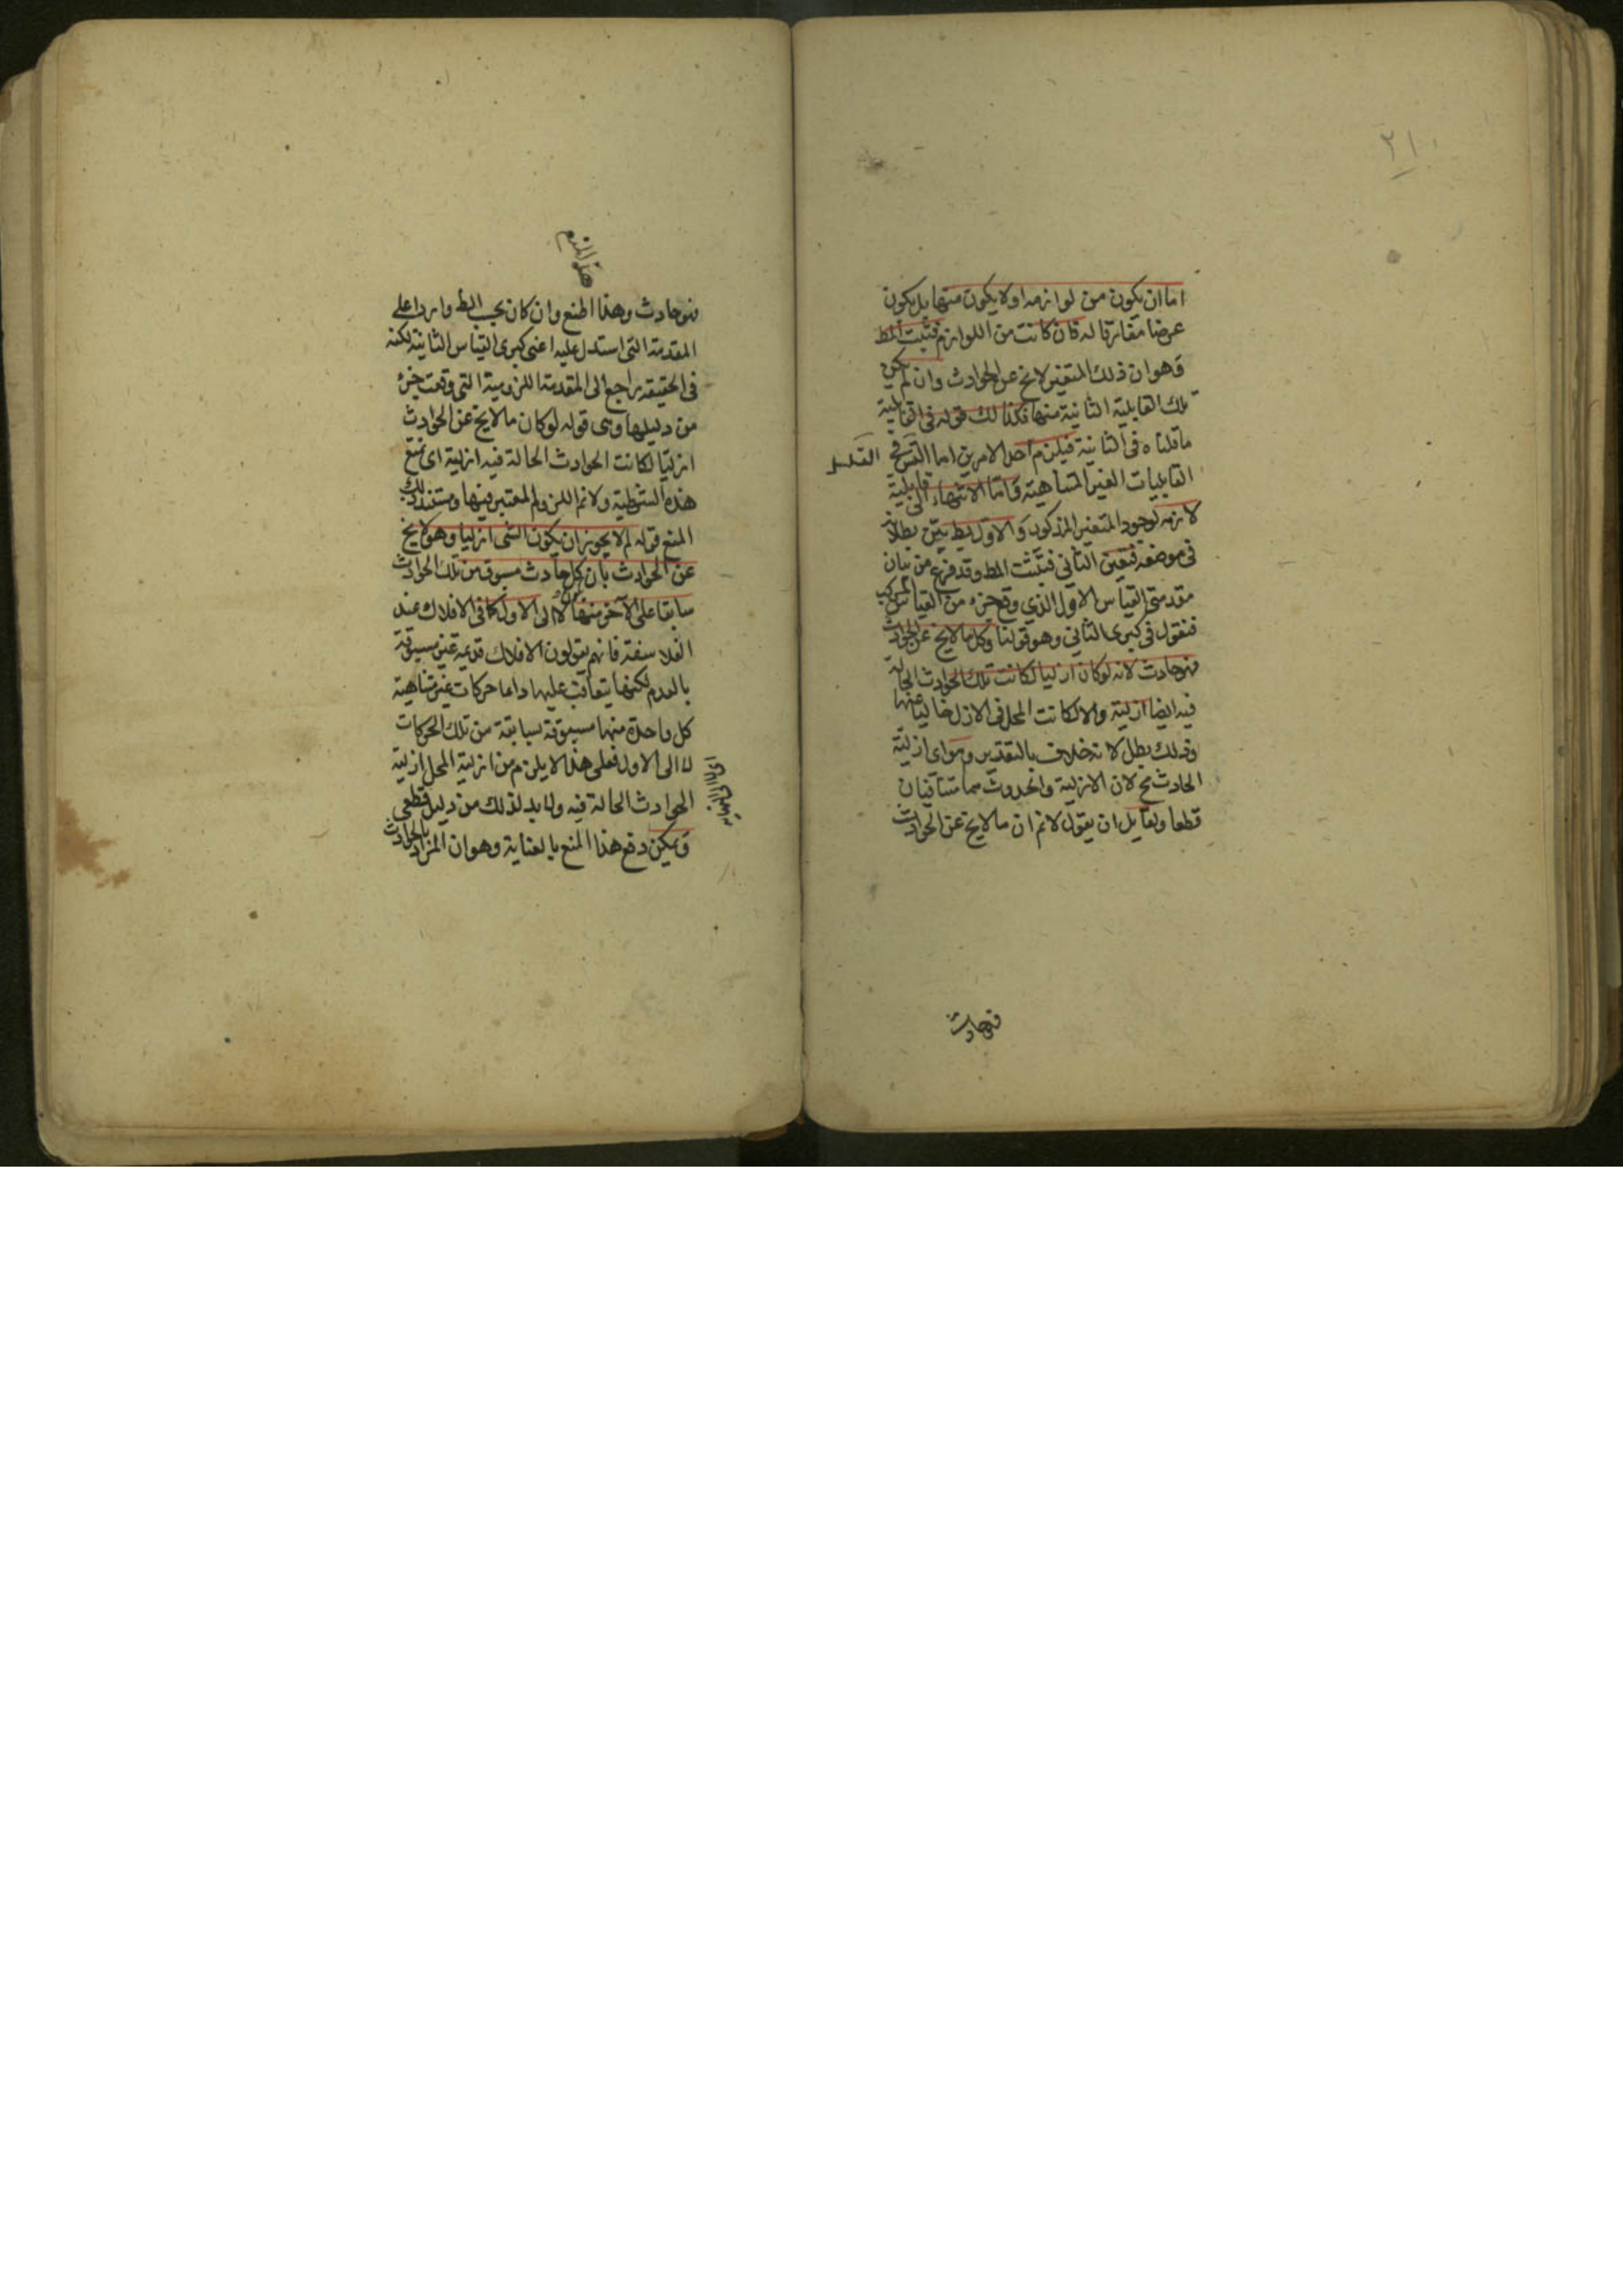 ٢١٠
اما ان يكون من لوازمه او لا يكون منها بل يكون
عرضا مفارقا له فان كانت من اللوازم فثبت المط
وهو ان ذلك المتغير لا يخ عن الحوادث وان لم يكن
تلك القابلية الثانية منها فكذا لك قوله في القابلية
ما قلناه في الثانية فيلزم احد الامرين اما التس في
التسلسل
القابليات الغير المتناهية واما الانتهاء الى قابلية
لازمه لوجود المتغير المذكور والاول بط بين بطلانه
في موضعه فتعين الثاني فيثبت المط وقد فرغ من بيان
مقدمتي القياس الاول الذي وقع جزء من القياس المركب
فنقول في كبرى الثاني وهو قولنا وكل ما لا يخ عن الحوادث
فهو حادث لانه لو كان ازليا لكانت تلك الحوادث الحالة
فيه ايضا ازلية والا لكانت المحل في الازل خاليا عنها
وذلك بطل لانه خلاف بالتقدير وهو اى ازلية
الحادث مح لان الازلية والحدوث مما متنافيان
قطعا ولقايل ان يقول لانم ان ما لا يخ عن الحوادث
فهو حادث
هذا المنع
فهو حادث وهذا المنع وان كان بحسب الظ واردا على
المقدمة التي استدل عليه اعنى كبرى القياس الثانية لكنه
في الحقيقة راجع الى المقدمة اللزومية التي وقعت جزء
من دليلها وهى قوله لو كان ما لا يخ عن الحوادث
ازليا لكانت الحوادث الحالة فيه ازلية اى نمنع
هذه الشرطية ولانم اللزوم المعتبر فيها ومستند ذلك
المنع قوله لم لا يجوز ان يكون الشى ازليا وهو لا يخ
عن الحوادث بان كل حادث مسبوق من تلك الحوادث
سابقا على الآخر منها لا الى الاول كما في الافلاك عند
الفلاسفة فانهم يقولون الافلاك قديمة غير مسبوقة
بالعدم لكنها يتعاقب عليها دائما حركات غير متناهية
كل واحدة منها مسبوقة بسابقة من تلك الحركات
لا الى الاول فعلى هذا لا يلزم من ازلية المحل ازلية
الحوادث الحالة فيه ولا بد لذلك من دليل قطعى
ويمكن دفع هذا المنع بالعناية وهو ان المراد بالحوادث